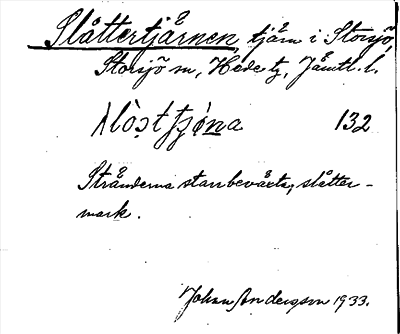 Slåttertjärnen, tjärn i Storsjö,
Storsjö sn, Hede tg, Jämtl. l.
132
Stränderna starrbeväxta, slåtter-
mark.
Johan Andersson 1933.